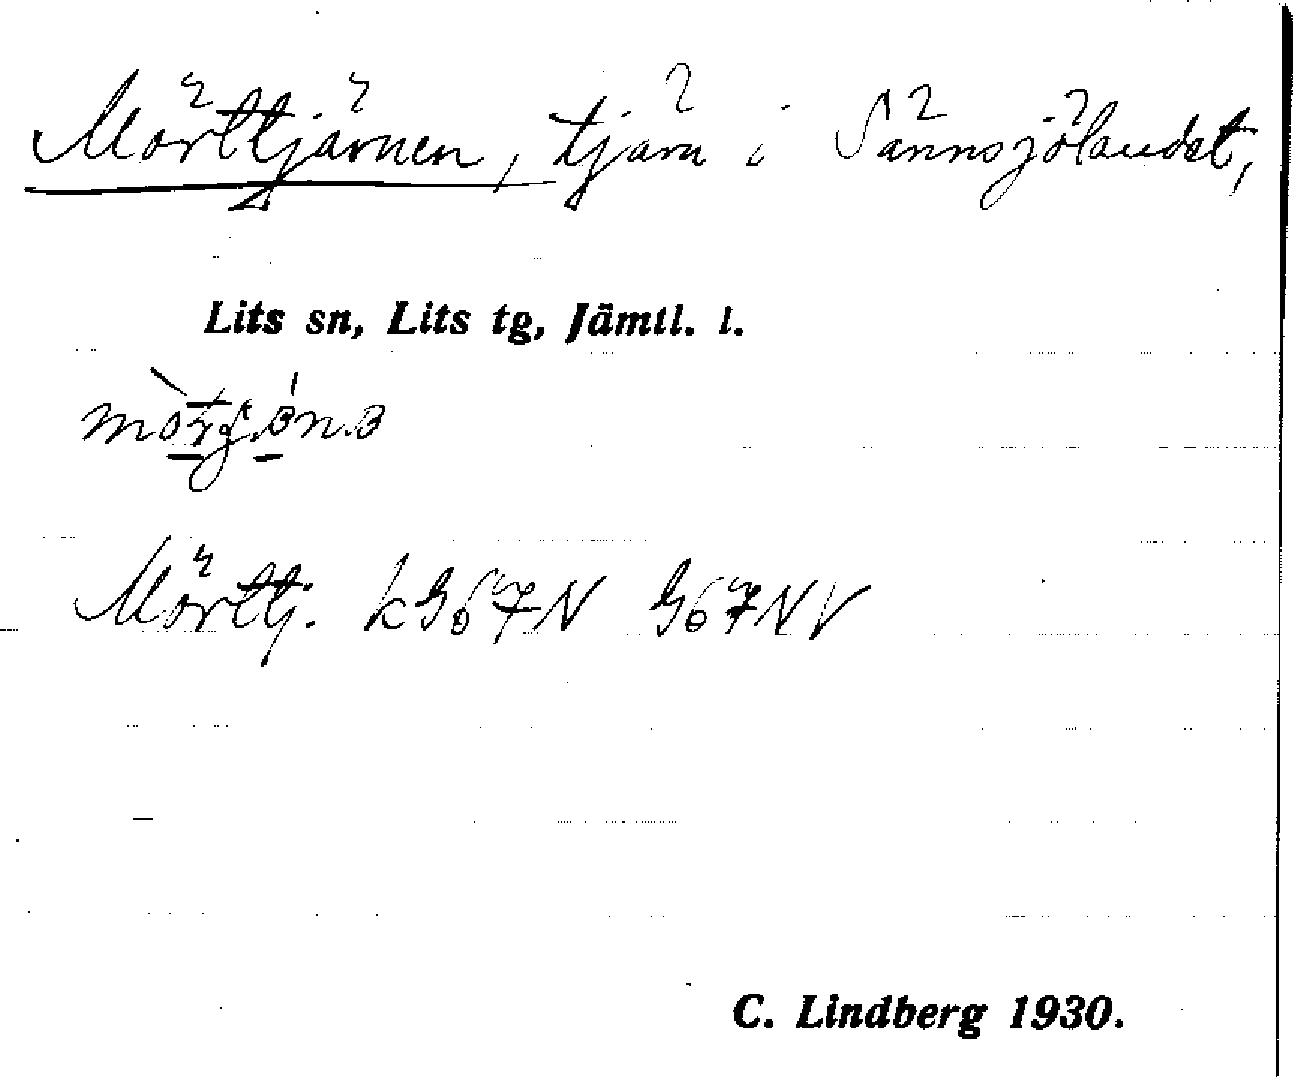 Mörttjärnen, tjärn i Sännsjölandet,
Lits sn, Lits tg, Jämtl. l.
Mörttj. kG67N G67NV
C. Lindberg 1930.